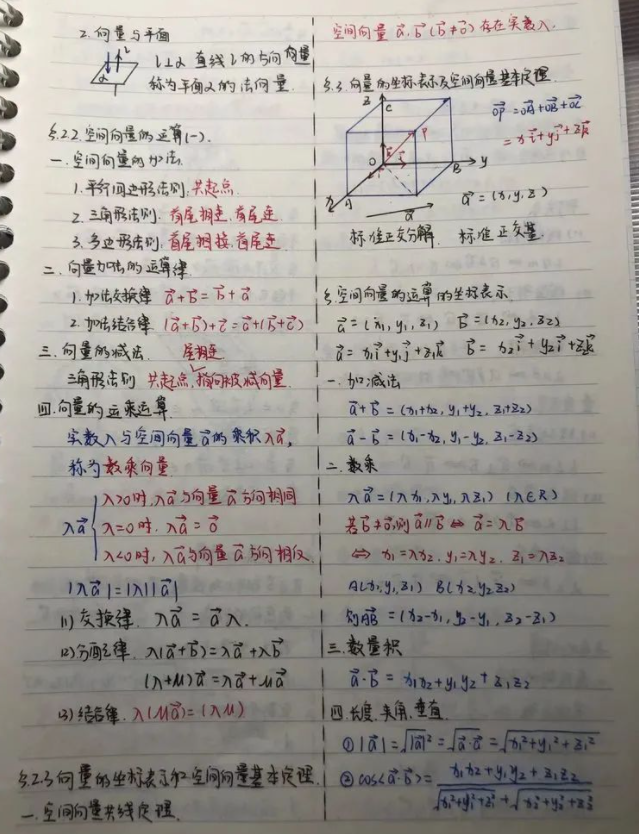 2. 向量与平面
l⊥α 直线l的方向向量
称为平面α的法向量.
§2.2. 空间向量的运算(一).
一. 空间向量的加法.
1. 平行四边形法则. 共起点.
2. 三角形法则. 首尾相连, 首尾连
3. 多边形法则. 首尾相接, 首尾连
二. 向量加法的运算律
1. 加法交换律 a⃗+b⃗=b⃗+a⃗
2. 加法结合律 (a⃗+b⃗)+c⃗=a⃗+(b⃗+c⃗)
三. 向量的减法. 尾相连
三角形法则 共起点, 指向被减向量
四. 向量的运乘运算.
实数λ与空间向量a⃗的乘积λa⃗,
称为数乘向量.
λ>0时, λa⃗与向量a⃗方向相同
λa⃗ { λ=0时. λa⃗=0⃗
λ<0时, λa⃗与向量a⃗方向相反
|λa⃗|=|λ||a⃗|
(1) 交换律. λa⃗=a⃗λ.
(2) 分配律. λ(a⃗+b⃗)=λa⃗+λb⃗
(λ+μ)a⃗=λa⃗+μa⃗
(3) 结合律. λ(μa⃗)=(λμ)
§2.3 向量的坐标表示和空间向量基本定理.
一. 空间向量共线定理.
空间向量 a⃗, b⃗(b⃗≠0⃗) 存在实数λ.
§.3. 向量的坐标表示及空间向量基本定理.
z
C
P
O
B
y
x
A
a⃗
OP⃗=OA⃗+OB⃗+OC⃗
=xi⃗+yj⃗+zk⃗
a⃗=(x,y,z)
标准正交分解. 标准正交基.
§. 空间向量的运算的坐标表示.
a⃗=(x₁,y₁,z₁) b⃗=(x₂,y₂,z₂)
a⃗=x₁i⃗+y₁j⃗+z₁k⃗ b⃗=x₂i⃗+y₂j⃗+z₂k⃗
一. 加减法
a⃗+b⃗=(x₁+x₂, y₁+y₂, z₁+z₂)
a⃗-b⃗=(x₁-x₂, y₁-y₂, z₁-z₂)
二. 数乘
λa⃗=(λx₁, λy₁, λz₁) (λ∈R)
若b⃗≠0⃗, 则a⃗∥b⃗⇔a⃗=λb⃗
⇔ x₁=λx₂, y₁=λy₂, z₁=λz₂
A(x₁,y₁,z₁) B(x₂,y₂,z₂)
则AB⃗=(x₂-x₁, y₂-y₁, z₂-z₁)
三. 数量积
a⃗·b⃗=x₁x₂+y₁y₂+z₁z₂
四. 长度. 夹角. 垂直
① |a⃗|=√|a⃗|²=√a⃗·a⃗=√x₁²+y₁²+z₁²
② cos<a⃗·b⃗>=x₁x₂+y₁y₂+z₁z₂
√x₁²+y₁²+z₁²+√x₂²+y₂²+z₂²